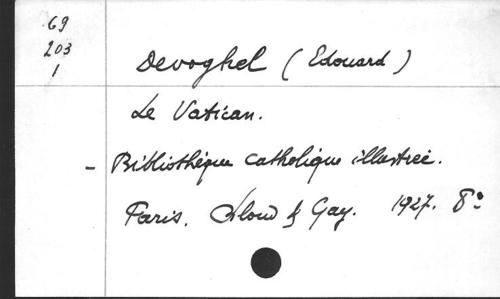 69
203
1
Devoghel (Edouard)
Le Vatican.
- Bibliothèque catholique illustrée.
Paris. Bloud & Gay. 1927. 8º